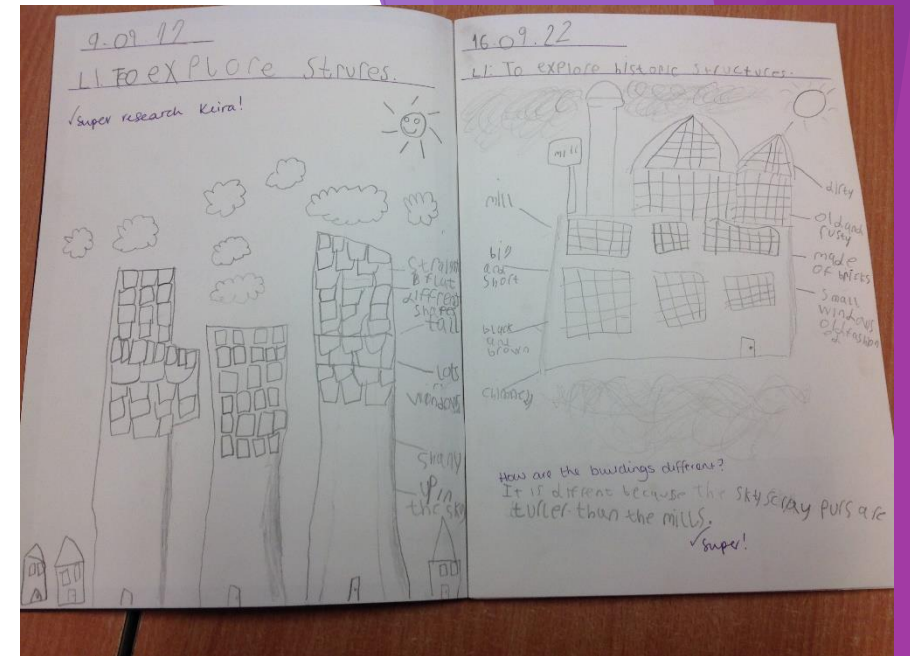 9.09 22
LI: To explore Strures.
✓super research Keira!
& flat
different
shapes
tall
Lots
windows
up in
the sky
16.09.22
LI: To explore historic structures.
mill
mill
big
and
short
black
and
brown
chimney
dirty
old and
rusty
made
of bricks
small
windows
old fashion
How are the buildings different?
It is difrent because the skyscray purs are
turler than the mills.
✓super!